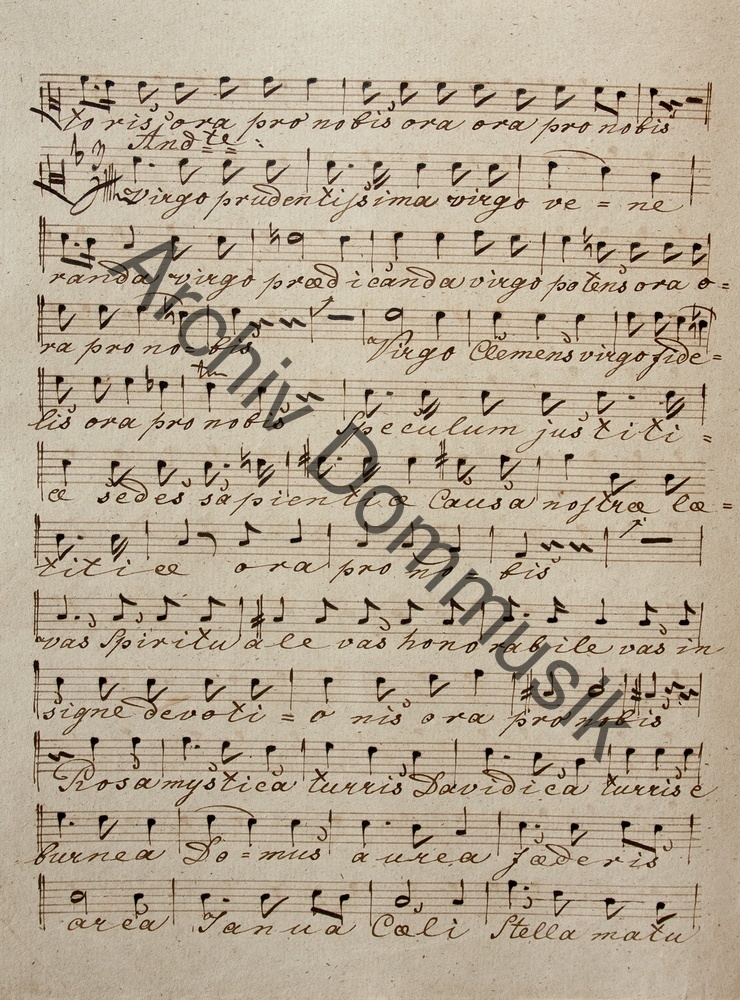 to ris ora pro nobis ora ora pro nobis
And te :
Virgo prudentissima virgo ve = ne
randa virgo prædicanda virgo potens ora o =
ra pro no = bis Virgo Clemens virgo fide =
lis ora pro nobis Speculum justiti =
æ sedes sapientiæ Causa nostræ læ =
titiæ ora pro no = bis
vas Spiritu a le vas honorabile vas in
signe devoti = o nis ora pro nobis
Rosa mystica turris Davidica turris e
burnea Do = mus aurea fæderis
arca Janua Cœli Stella matu
Archiv Dommusik